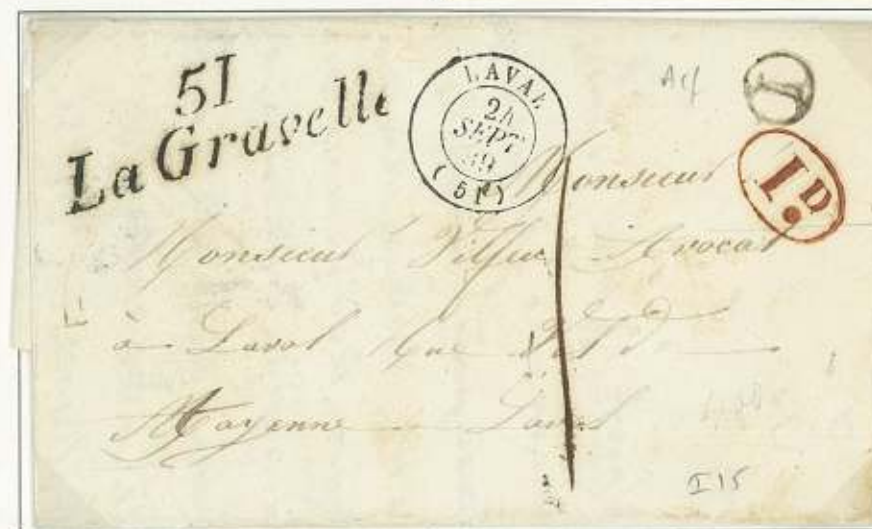 51
La Gravelle
LAVAL
24
SEPT
39
(51)
J
1D.
Monsieur
Monsieur Avocat
à Laval
Mayenne Laval
I15